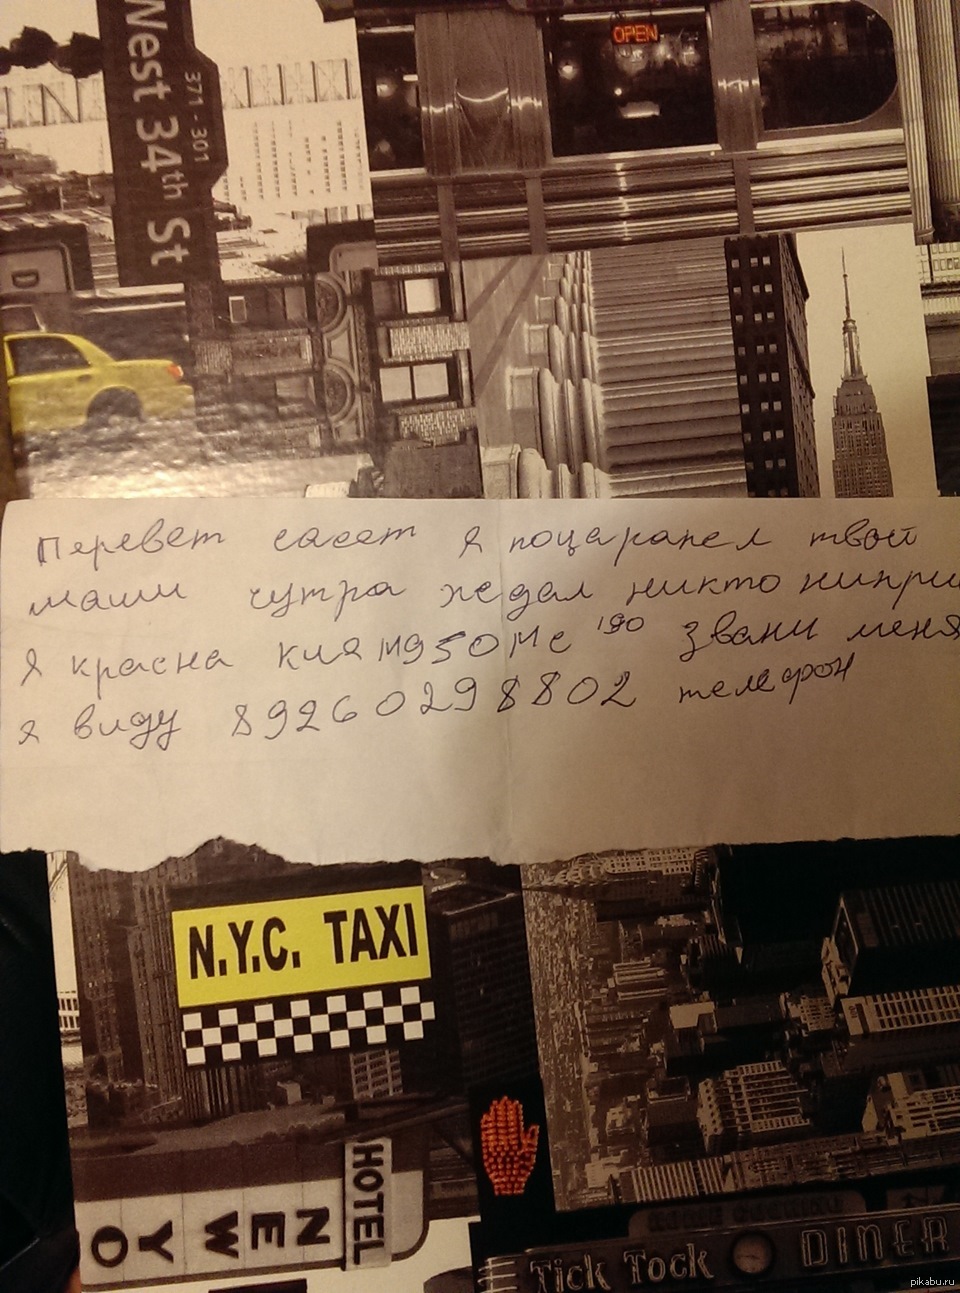 West 34th St
371 - 301
OPEN
D
Перевет сасет я поцарапел твой
маши чутра ждал никто нипри
я красна киа м950мс 190 звани меня
я виду 89260298802 телефон
N.Y.C. TAXI
HOTEL
NEW YO
Tick Tock DINER
pikabu.ru